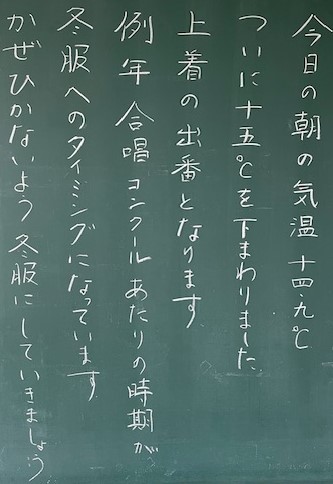 今日の朝の気温 十四.九℃
ついに十五℃を下まわりました
上着の出番となります
例年 合唱コンクールあたりの時期が
冬服へのタイミングになっています
かぜひかないよう 冬服にしていきましょう